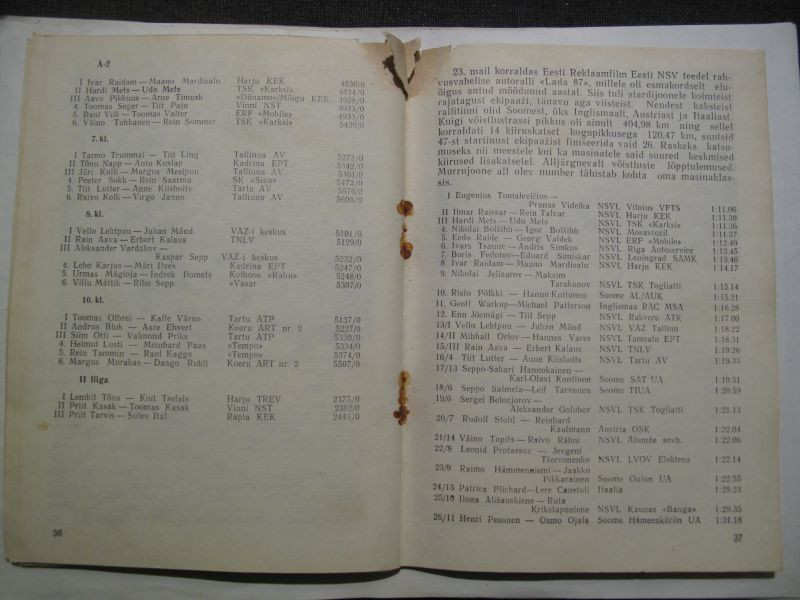 A-2
I Ivar Raidam — Maano Mardisalu Harju KEK 4830/0
II Hardi Mets — Udo Mets TSK «Karksi» 4834/0
III Aavo Pikkuus — Arne Timusk «Dünamo»/Mõigu KEK 4928/0
4. Toomas Seger — Tiit Paju Vinni NST 4933/0
5. Raul Viik — Toomas Valter ERF «Mobile» 4933/0
6. Väino Tuhkanen — Rein Sommer TSK «Karksi» 5439/0
7. kl.
I Tarmo Trummal — Tiit Ling Tallinna AV 5273/0
II Tõnu Napp — Avlo Kuslap Kadrina EPT 5342/0
III Jüri Kulli — Margus Mesipuu Tallinna AV 5361/0
4. Peeter Sokk — Rein Saarma SK «Sina» 5473/0
5. Tiit Lutter — Anne Kiisholts Tartu AV 5576/0
6. Raivo Kolk — Virgo Janno Tallinna AV 5606/0
8. kl.
I Vello Lehtpuu — Juhan Mänd VAZ-i keskus 5101/0
II Rain Aava — Erbert Kalaus TNLV 5129/0
III Aleksander Vardakov —
Kaspar Sepp VAZ-i keskus 5232/0
4. Leho Karjus — Märt Ilves Kadrina EPT 5247/0
5. Urmas Mägioja — Indrek Ilomets Kolhoos «Rahu» 5248/0
6. Villu Mättik — Riho Sepp «Vasar 5307/0
10. kl.
I Toomas Olbrei — Kalle Värno Tartu ATP 5137/0
II Andrus Blok — Aare Ehvert Koeru ART nr. 2 5227/0
III Siim Otti — Valmond Priks Tartu ATP 5330/0
4. Helmut Lusti — Meinhard Paas «Tempo» 5334/0
5. Rein Tammin — Raul Kagge «Tempo» 5374/0
6. Margus Murakas — Daago Rubli Koeru ART nr. 2 5507/0
II liiga
I Lembit Tõns — Koit Tsefels Harju TREV 2375/0
II Priit Kasak — Toomas Kasak Vinni NST 2382/0
III Priit Tarvis — Sulev Ital Rapla KEK 2443/0
36
23. mail korraldas Eesti Reklaamfilm Eesti NSV teedel rah-
vusvahelise autoralli «Lada 87», millele oli esmakordselt elu-
õigus antud möödunud aastal. Siis tuli stardijoonele kolmteist
rajatagust ekipaaži, tänavu aga viisteist. Nendest kaksteist
rallitiimi olid Soomest, üks Inglismaalt, Austriast ja Itaaliast.
Kuigi võistlustrassi pikkus oli ainult 404,98 km ning sellel
korraldati 14 kiiruskatset kogupikkusega 120,47 km, suutsid
47-st startinust ekipaažist finišeerida vaid 26. Raskeks katsu-
museks nii meestele kui ka masinatele said suured keskmised
kiirused lisakatsetel. Alljärgnevalt võistluste lõpptulemused.
Murrujoone all olev number tähistab kohta oma masinaklas-
sis.
I Eugenius Tumalevičius —
Pranas Videika NSVL Vilnius VFTS 1:11.06
II Ilmar Raissar — Rein Talvar NSVL Harju KEK 1:11.30
III Hardi Mets — Udo Mets NSVL TSK «Karksi» 1:11.36
4. Nikolai Bolšihh — Igor Bolšihh NSVL Mosavtozil 1:11.37
5. Eedo Raide — Georg Valdek NSVL ERF «Mobile» 1:12.49
6. Ivars Tsaune — Andris Simkus NSVL Riga Autoserviss 1:13.45
7. Boris Fedotov — Eduard Simiskar NSVL Leningrad SAMK 1:13.46
8. Ivar Raidam — Maano Mardisalu NSVL Harju KEK 1:14.17
9. Nikolai Jelizarov — Maksim
Tarakanov NSVL TSK Togliatti 1:15.14
10. Risto Pölkki — Hannu Kuttunen Soome AL/AUK 1:15.21
11. Geoff Warkup — Michael Patterson Inglismaa RAC MSA 1:16.28
12. Enn Jõemägi — Tiit Sepp NSVL Rakvere ATK 1:17.00
13/I Vello Lehtpuu — Juhan Mänd NSVL VAZ Tallinn 1:18.22
14/II Mihhail Orlov — Hannes Vares NSVL Tamsalu EPT 1:18.31
15/III Rain Aava — Erbert Kalaus NSVL TNLV 1:19.26
16/4 Tiit Lutter — Anne Kiisholts NSVL Tartu AV 1:19.33
17/13 Seppo-Sakari Hannokainen —
Karl-Olavi Kontinen Soome SAT UA 1:19.51
18/6 Seppo Salmela — Leif Tarvonen Soome TIUA 1:20.59
19/6 Sergei Belozjorov —
Aleksander Golubev NSVL TSK Togliatti 1:21.13
20/7 Rudolf Stohl — Reinhard
Kaufmann Austria OSK 1:22.04
21/14 Väino Tupits — Raivo Rähni NSVL Ääsmäe sovh. 1:22.06
22/8 Leonid Protassov — Jevgeni
Tšervonenko NSVL LVOV Elektron 1:22.14
23/9 Raimo Hämunenniemi — Jaakko
Pikkarainen Soome Oulun UA 1:22.55
24/15 Patrica Plichard — Lere Canetoli Itaalia 1:29.23
25/10 Ilona Ališauskiene — Ruta
Krikštaponiene NSVL Kaunas «Banga» 1:29.35
26/11 Henri Pesonen — Osmo Ojala Soome Hämeenkürön UA 1:31.18
37